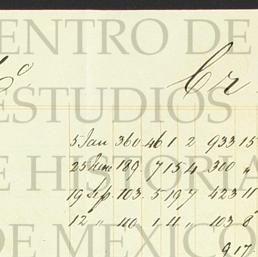 CENTRO DE
Co Cr
ESTUDIOS
5 Jan 360 46 1 2 933 15
25 June 189 7 15 4 300 "
DE HISTORIA
19 Sep 103. 5 19 7 423 11
12 " 110 1 11 " 103 6
DE MEXICO
917